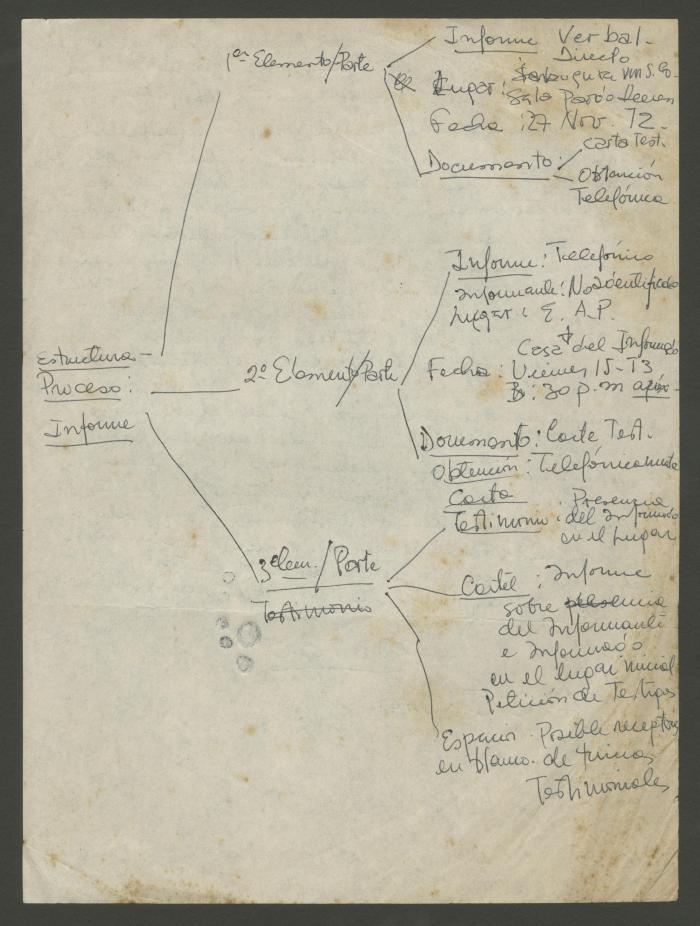 Estructura -
Proceso:
Informe
1er Elemento/Parte
Informe Verbal-
Directo
Lugar:
Sala
Fecha : 27 Nov. 72.
Documento: Carta Test.
Obtención
Telefónica
2º Elemento/Parte
Informe: Telefónico
Informante: No identificado
Lugar: E. A. P.
Casa del Informado
Fecha: Viernes 15-
:30 p.m aprox-
Documento: Carta Test.
Obtención: Telefónicamente
3 Elem./Parte
Testimonio
Carta
Testimonio: Presencia
del Informado
en el Lugar
Cartel: Informe
sobre presencia
del Informante
e Informado
en el lugar inicial
Petición de Testigos
Espacio Posible receptor
en blanco. de
Testimoniales